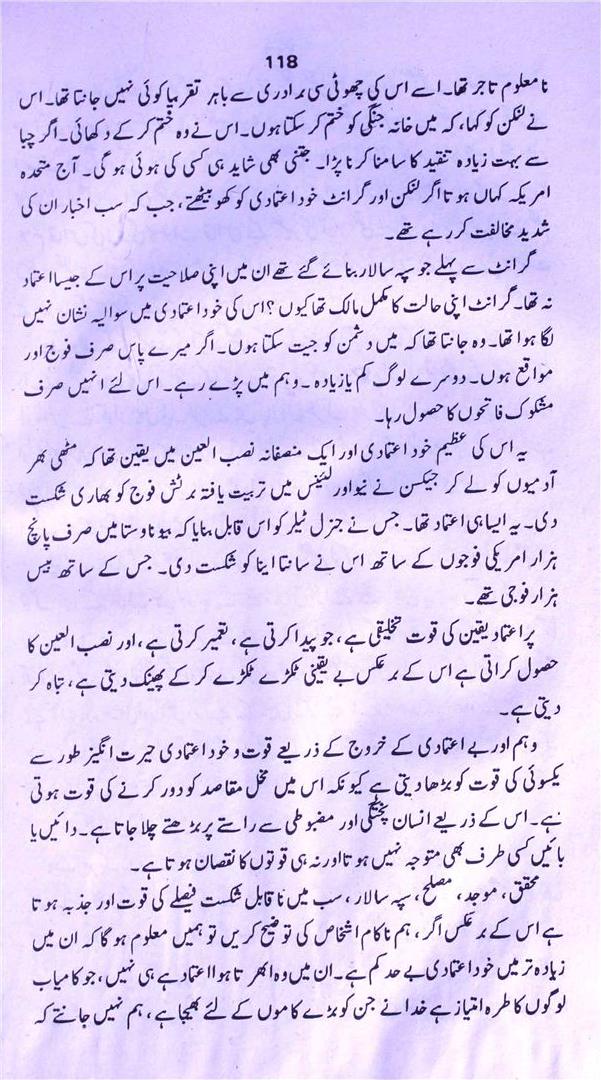 118
نا معلوم تاجر تھا۔ اسے اس کی چھوٹی سی برادری سے باہر تقریبا کوئی نہیں جانتا تھا۔ اس
نے لنکن کو کہا، کہ میں خانہ جنگی کو ختم کر سکتا ہوں۔ اس نے وہ ختم کر کے دکھائی۔ اگر چہا
سے بہت زیادہ تنقید کا سامنا کرنا پڑا۔ جتنی بھی شاید ہی کسی کی ہوئی ہو گی۔ آج متحدہ
امریکہ کہاں ہوتا اگر لنکن اور گرانٹ خود اعتمادی کو کھو بیٹھتے، جب کہ سب اخبار ان کی
شدید مخالفت کر رہے تھے۔
گرانٹ سے پہلے جو سپہ سالار بنائے گئے تھے ان میں اپنی صلاحیت پر اس کے جیسا اعتماد
نہ تھا۔ گرانٹ اپنی حالت کا مکمل مالک تھا کیوں؟ اس کی خود اعتمادی میں سوالیہ نشان نہیں
لگا ہوا تھا۔ وہ جانتا تھا کہ میں دشمن کو جیت سکتا ہوں۔ اگر میرے پاس صرف فوج اور
مواقع ہوں۔ دوسرے لوگ کم یا زیادہ۔ وہم میں پڑے رہے۔ اس لئے انہیں صرف
مشکوک فاتحوں کا حصول رہا۔
یہ اس کی عظیم خود اعتمادی اور ایک منصفانہ نصب العین میں یقین تھا کہ مٹھی بھر
آدمیوں کو لے کر جیکسن نے نیو اورلئینس میں تربیت یافتہ برٹش فوج کو بھاری شکست
دی۔ یہ ایسا ہی اعتماد تھا۔ جس نے جنرل ٹیلر کو اس قابل بنایا کہ بیوناوستا میں صرف پانچ
ہزار امریکی فوجوں کے ساتھ اس نے سانتا اینا کو شکست دی۔ جس کے ساتھ بیس
ہزار فوجی تھے۔
پر اعتماد یقین کی قوت تخلیقی ہے، جو پیدا کرتی ہے، تعمیر کرتی ہے، اور نصب العین کا
حصول کراتی ہے اس کے بر عکس بے یقینی ٹکڑے ٹکڑے کر کے پھینک دیتی ہے، تباہ کر
دیتی ہے۔
وہم اور بے اعتمادی کے خروج کے ذریعے قوت و خود اعتمادی حیرت انگیز طور سے
یکسوئی کی قوت کو بڑھا دیتی ہے کیونکہ اس میں مخل مقاصد کو دور کرنے کی قوت ہوتی
ہے۔ اس کے ذریعے انسان پختگی اور مضبوطی سے راستے پر بڑھتے چلا جاتا ہے۔ دائیں یا
بائیں کسی طرف بھی متوجہ نہیں ہوتا اور نہ ہی قوتوں کا نقصان ہوتا ہے۔
محقق، موجد، مصلح، سپہ سالار، سب میں نا قابل شکست فیصلے کی قوت اور جذبہ ہوتا
ہے اس کے بر عکس اگر، ہم ناکام اشخاص کی توضیح کریں تو ہمیں معلوم ہو گا کہ ان میں
زیادہ تر میں خود اعتمادی بے حد کم ہے۔ ان میں وہ ابھرتا ہوا اعتماد ہے ہی نہیں، جو کامیاب
لوگوں کا طرہ امتیاز ہے خدا نے جن کو بڑے کاموں کے لئے بھیجا ہے، ہم نہیں جانتے کہ